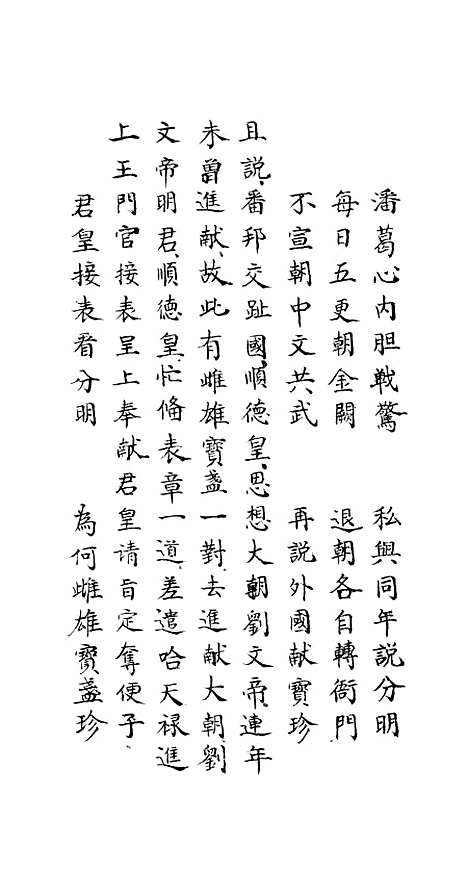 潘葛心内胆戰驚　私與同年説分明
每日五更朝金闕　退朝各自轉衙門
不宣朝中文共武　再説外國献寳珍
且説、番邦交趾國、順德皇、思想大朝劉文帝、連年
未曽進献、故此有雌雄寳盞一對、去進献大朝劉
文帝明君、順德皇、忙俻表章一道、差遣哈天禄進
上王門官接表呈上奉献君皇请旨定奪便了、
君皇接表看分明　為何雌雄寳盞珍